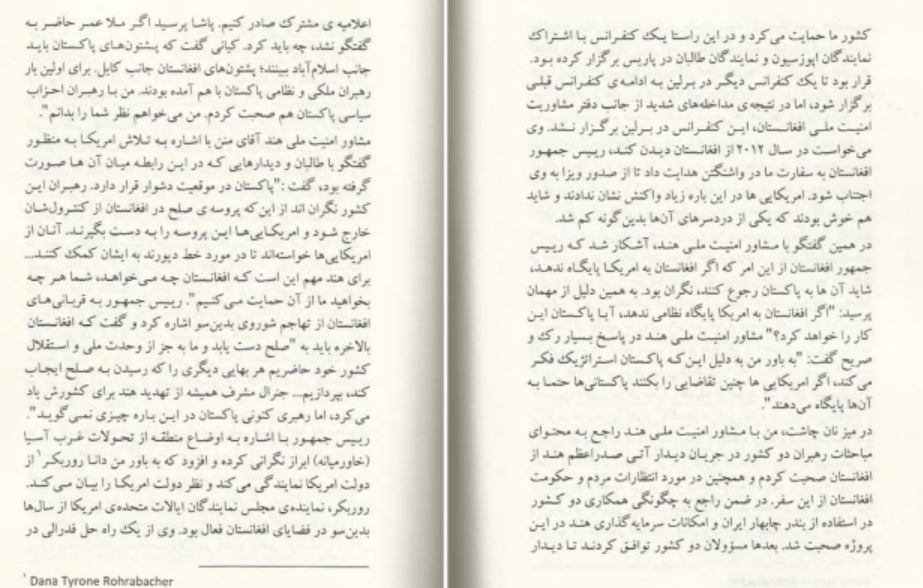 اعلامیه ی مشترک صادر کنیم. پاشا پرسید اگر ملا عمر حاضر به
گفتگو نشد، چه باید کرد. کیانی گفت که پشتون‌های پاکستان باید
جانب اسلام‌آباد ببینند؛ پشتون‌های افغانستان جانب کابل. برای اولین بار
رهبران ملکی و نظامی پاکستان با هم آمده بودند. من با رهبران احزاب
سیاسی پاکستان هم صحبت کردم. من می‌خواهم نظر شما را بدانم".
مشاور امنیت ملی هند آقای منن با اشاره به تلاش امریکا به منظور
گفتگو با طالبان و دیدارهایی که در این رابطه میان آن ها صورت
گرفته بود، گفت :"پاکستان در موقعیت دشوار قرار دارد. رهبران این
کشور نگران اند از این‌که پروسه ی صلح در افغانستان از کنترول‌شان
خارج شود و امریکایی‌ها این پروسه را به دست بگیرند. آنان از
امریکایی‌ها خواسته‌اند تا در مورد خط دیورند به ایشان کمک کنند...
برای هند مهم این است که افغانستان چه می‌خواهد، شما هر چه
بخواهید ما از آن حمایت می‌کنیم". رییس جمهور به قربانی‌های
افغانستان از تهاجم شوروی بدین‌سو اشاره کرد و گفت که افغانستان
بالاخره باید به "صلح دست یابد و ما به جز از وحدت ملی و استقلال
کشور خود حاضریم هر بهایی دیگری را که رسیدن به صلح ایجاب
کند، بپردازیم... جنرال مشرف همیشه از تهدید هند برای کشورش یاد
می‌کرد، اما رهبری کنونی پاکستان در این باره چیزی نمی‌گوید".
رییس جمهور با اشاره به اوضاع منطقه از تحولات غرب آسیا
(خاورمیانه) ابراز نگرانی کرده و افزود که به باور من دانا روربکر¹ از
دولت امریکا نمایندگی می‌کند و نظر دولت امریکا را بیان می‌کند.
روربکر، نماینده‌ی مجلس نمایندگان ایالات متحده‌ی امریکا از سال‌ها
بدین‌سو در قضایای افغانستان فعال بود. وی از یک راه حل فدرالی در
¹ Dana Tyrone Rohrabacher
کشور ما حمایت می‌کرد و در این راستا یک کنفرانس با اشتراک
نمایندگان اپوزسیون و نمایندگان طالبان در پاریس برگزار کرده بود.
قرار بود تا یک کنفرانس دیگر در برلین به ادامه‌ی کنفرانس قبلی
برگزار شود، اما در نتیجه‌ی مداخله‌های شدید از جانب دفتر مشاوریت
امنیت ملی افغانستان، این کنفرانس در برلین برگزار نشد. وی
می‌خواست در سال ۲۰۱۲ از افغانستان دیدن کند، رییس جمهور
افغانستان به سفارت ما در واشنگتن هدایت داد تا از صدور ویزا به وی
اجتناب شود. امریکایی ها در این باره زیاد واکنش نشان ندادند و شاید
هم خوش بودند که یکی از دردسرهای آن‌ها بدین گونه کم شد.
در همین گفتگو با مشاور امنیت ملی هند، آشکار شد که رییس
جمهور افغانستان از این امر که اگر افغانستان به امریکا پایگاه ندهد،
شاید آن ها به پاکستان رجوع کنند، نگران بود. به همین دلیل از مهمان
پرسید: "اگر افغانستان به امریکا پایگاه نظامی ندهد، آیا پاکستان این
کار را خواهد کرد؟" مشاور امنیت ملی هند در پاسخ بسیار رک و
صریح گفت: "به باور من به دلیل این‌که پاکستان استراتژیک فکر
می‌کند، اگر امریکایی ها چنین تقاضایی را بکنند پاکستانی‌ها حتما به
آن‌ها پایگاه می‌دهند".
در میز نان چاشت، من با مشاور امنیت ملی هند راجع به محتوای
مباحثات رهبران دو کشور در جریان دیدار آتی صدراعظم هند از
افغانستان صحبت کردم و همچنین در مورد انتظارات مردم و حکومت
افغانستان از این سفر. در ضمن راجع به چگونگی همکاری دو کشور
در استفاده از بندر چابهار ایران و امکانات سرمایه‌گذاری هند در این
پروژه صحبت شد. بعدها مسؤولان دو کشور توافق کردند تا دیدار